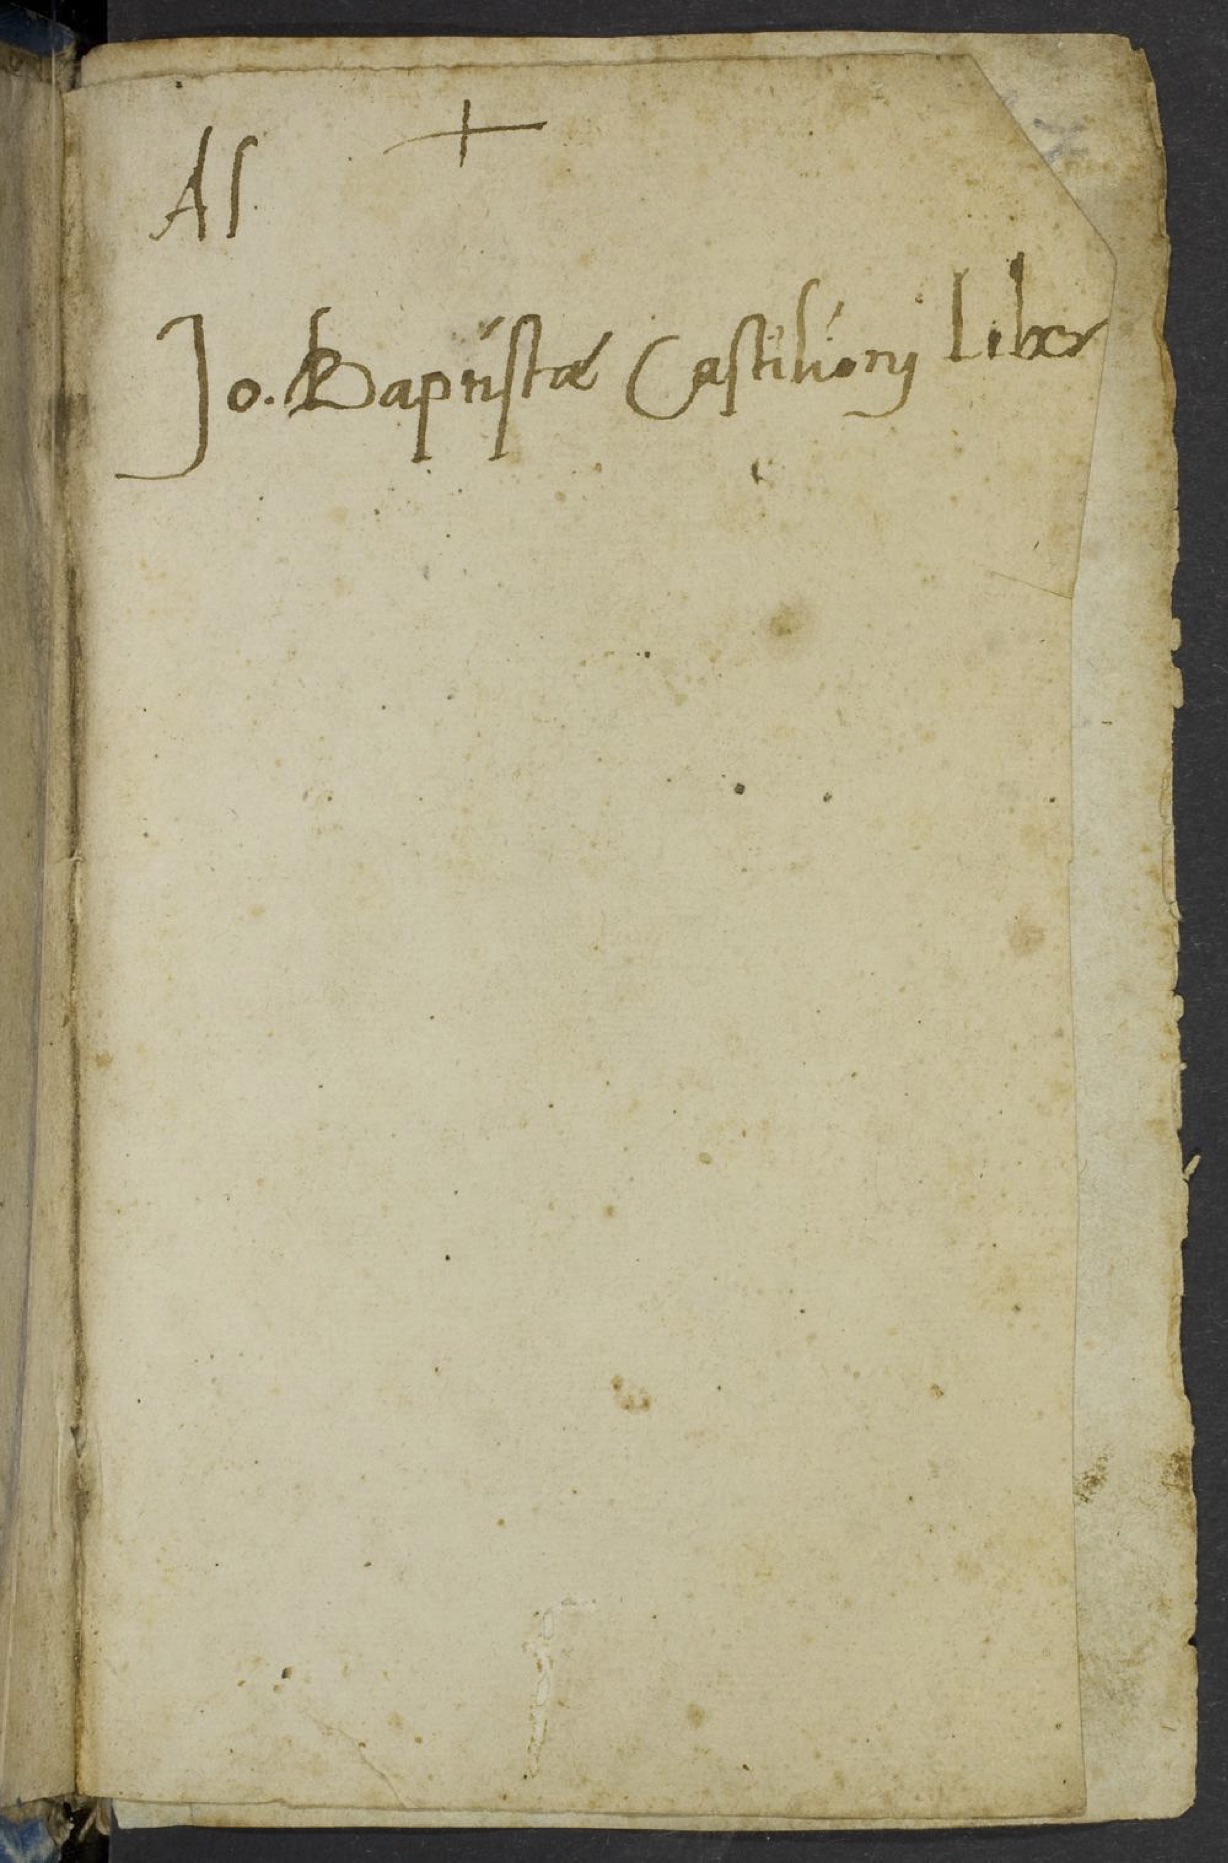 +
AS.
Jo. Baptistæ Castilionij Liber